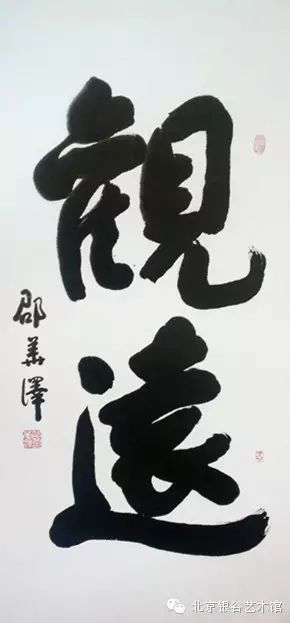 觀遠
邵華澤
北京银谷艺术馆